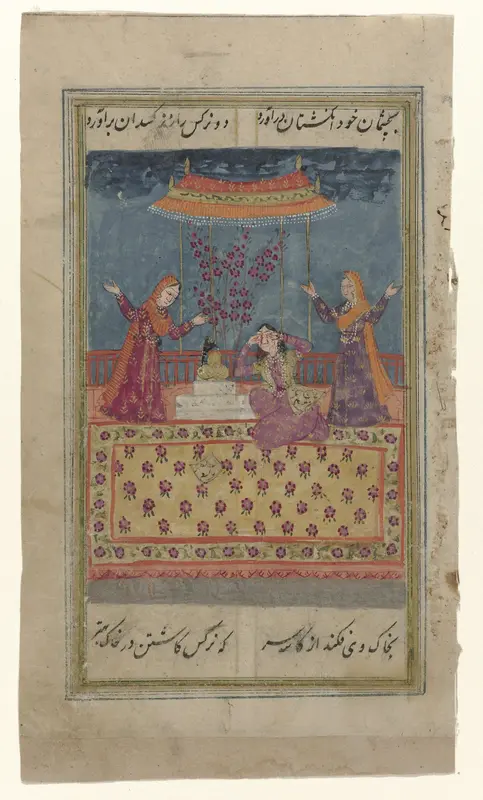 بچشمان خود انگشتان در آورد دو نرگس را ز نرگسدان بر آورد
بخاک وی فکند از کاسه سر که نرگس کاشتن در خاک بهتر